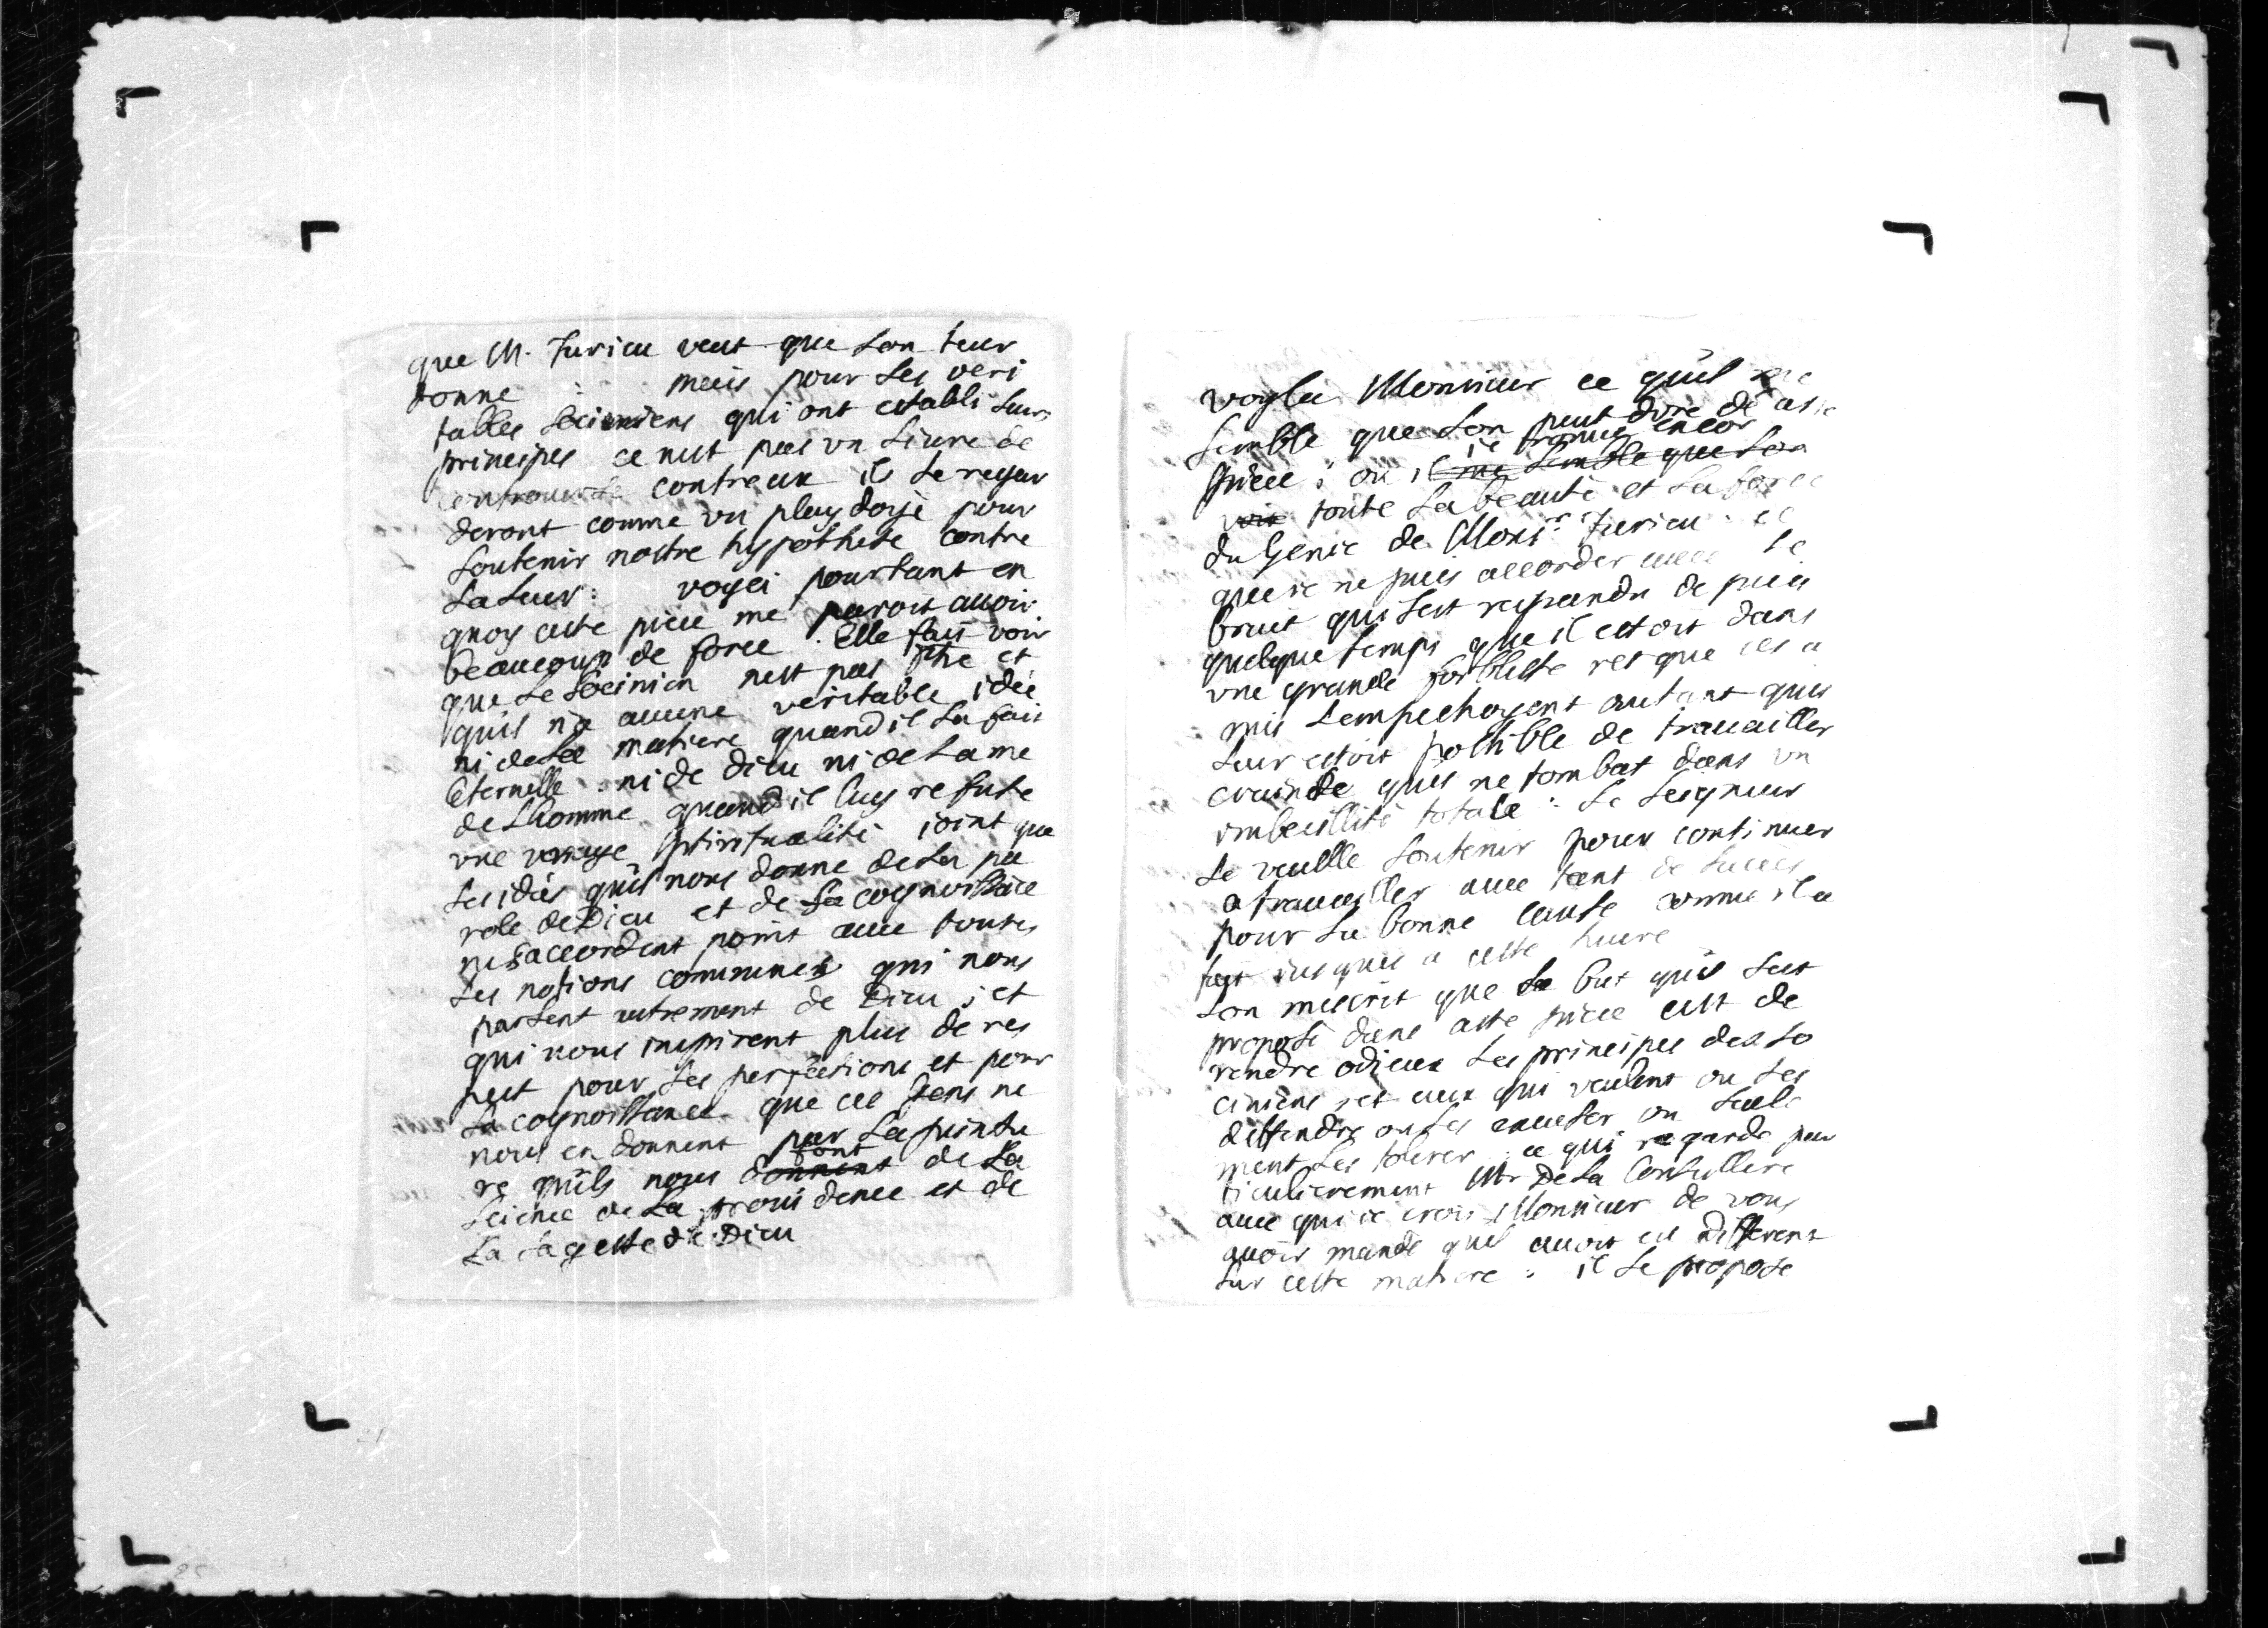 que M. Jurieu veut que lon leur
donne : mais pour les veri
tables sociniens qui ont establi leurs
principes ce nest pas vn liure de
controuerse contreux il le regar
deront comme vn playdoyé pour
soutenir nostre hypothese contre
la leur : voyci pourtant en
quoy cette piece me paroit auoir
beaucoup de force . Elle fait voir
que le socinien nest pas phe et
quil na aucune veritable idée
ni de la matiere quand il la fait
eternelle : ni de dieu ni de lame
de lhomme quand il luy refute
vne vraye spiritualité ioint que
les idées quil nous donne de la pa
role de Dieu et de la cognoissance
ne saccordent point auec toutes
les notions communes qui nous
parlent autrement de Dieu ; et
qui nous inspirent plus de res
pect pour les perfections et pour
la cognoissance que ces gens ne
nous en donnent par la peintu
re quils nous donnent font de la
science de la prouidence et de
la sagesse de Dieu
voyla Monsieur ce quil me
semble que lon peut dire de cette
piece : ou il me semble que lon ie trouue encor
voit toute la beauté et la force
du Genie de Monsr Jurieu : et
que ie ne puis accorder auec le
bruit qui sest repandu de puis
quelque temps que il estoit dans
vne grande foiblesse et que ses a
mis lempechoyent autant quil
leur estoit possible de trauailler
crainte quil ne tombat dans vn
imbecillité totale : le seigneur
le veuille soutenir pour continuer
a trauailler auec tant de succes
pour la bonne cause comme il a
fait iusques a cette heure
lon mescrit que le but quil sest
proposé dans cette piece est de
rendre odieux les principes des so
ciniens et ceux qui veulent ou les
deffendre ou les excuser ou seule
ment les tolerer : ce qui regarde par
ticulierement Mr De la Conseillere
auec qui ie crois Monsieur de vous
auoir mandé quil auoit eu different
sur cette matiere : il se propose